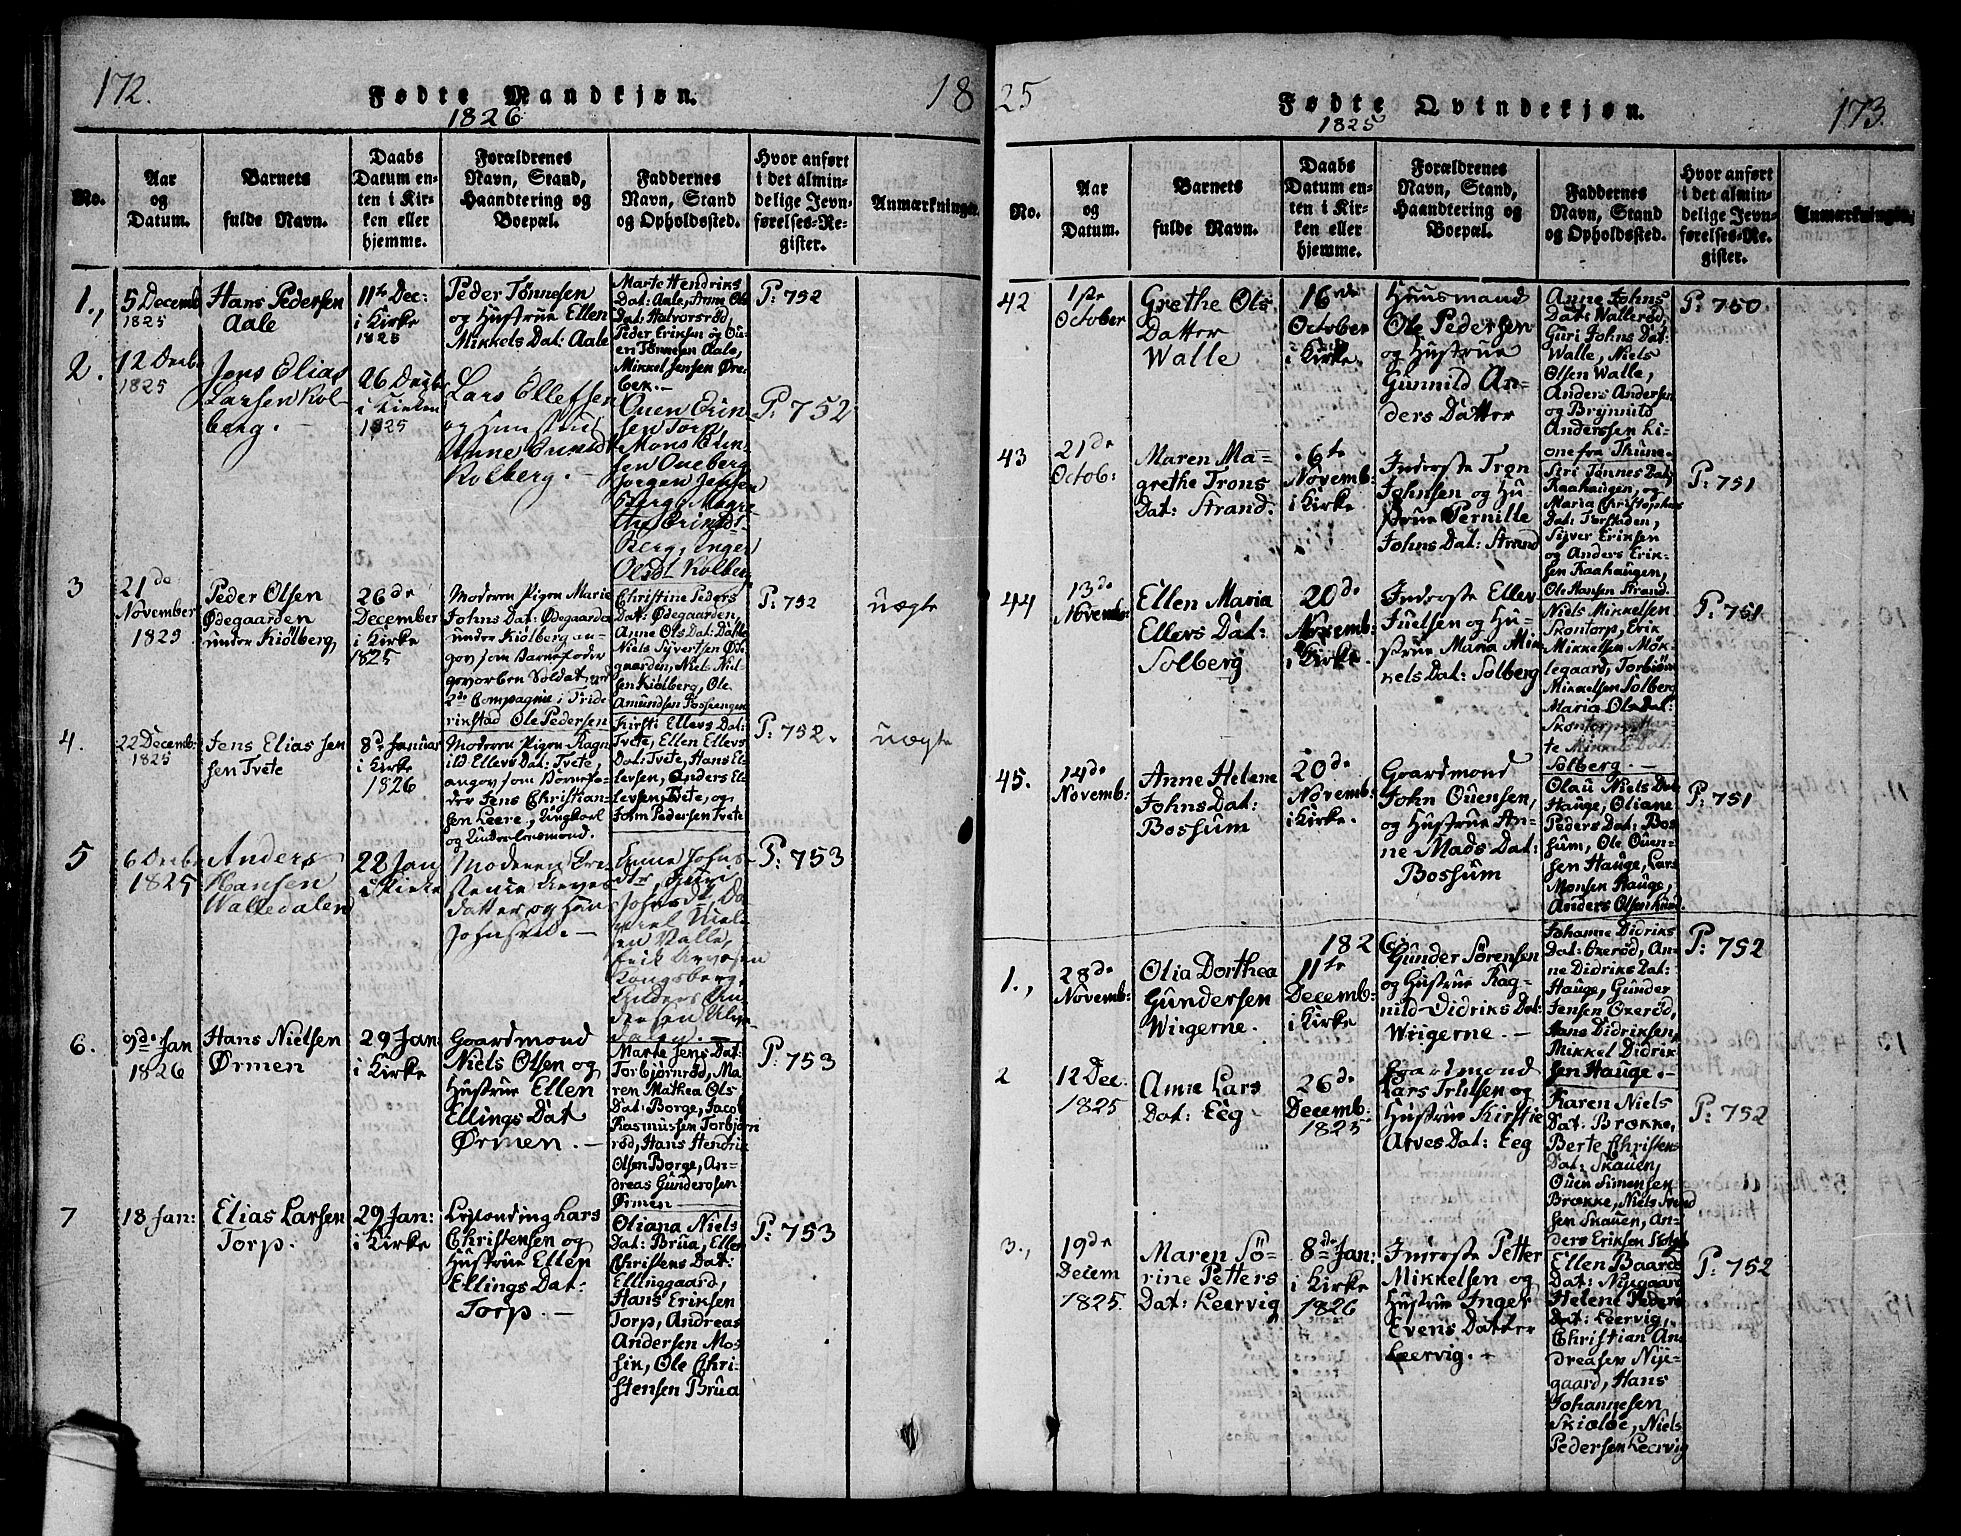 172.
Fødte Mandkjøn.
1826
18
No.
Aar
og
Datum.
Barnets
fulde Navn.
Daabs
Datum en-
ten i Kir-
ken eller
hjemme.
Forældrenes
Navn, Stand,
Haandtering og
Boepæl.
Faddernes
Navn, Stand
og Opholdssted.
Hvor anført
i det almin-
delige Jevn-
førelses-Re-
gister.
Anmærkninger.
1.,
5 Decemb
1825
Hans Pedersen
Aale
11te Dec:
i Kirke
1825
Peder Tønnesen
og Hustrue Ellen
Mikkels Dat: Aale
Marte Hendriks
Dat: Aale, Anne Ols
Dat: Halvorsrød,
Peder Eriksen og Ou-
en Tønnesen Aale,
Mikkel Jensen Øre-
bek.-
P: 752
2.
12 Decbr
1825
Jens Elias
Larsen Kol-
berg. -
26 Decbr
i Kirken
1825
Lars Ellefsen
og Hunstrue
Anne
Kolberg. -
Ouen Erin-
sen Torp,
Mons
sen Oueberg
Jørgen Jensen
Berg, Magre-
the
Berg, Inger
Olsdt Kolberg
P. 752
3
21de
November
1825
Peder Olsen
Ødegaarden
under Kiølberg,
26de
December
i Kirke
1825
Moderen Pigen Marie
Johns Dat: Ødegaarden
under Kiølberg an-
gov som Barnefader
gevorben Soldat ved
2de Compagnie i Fride
rikstad Ole Pedersen
Christine Peders
Dat: Ødegaarden,
Anne Ols Dat: Ditto
Niels Syvertsen Øde
gaarden, Niels Niel-
sen Kiølberg, Ole
Amundsen
P: 752
uægte
4.
22 Decemb:
1825
Jens Elias Jen
sen Tvete
8de Januar
i Kirke
1826
Moderen Pigen Ragn
ild Ellevs Dat: Tvete,
angov som Barnefa-
der Jens Christian-
sen Leere, Ungkarl
og Underlensmand.
Kirsti Ellevs Dat:
Tvete, Ellen Ellevs
Dat: Tvete, Hans El-
levsen, Anders El-
levsen Tvete, og
John Pedersen Tvete
P: 752.
uægte
5
6 Decbr
1825
Anders
Hansen
Walledalen
22 Jan
i Kirke
Moderen
datter og Hans
Johnsen. -
Anne Johns
dtr,
Johnsdt, Da-
niel Niel-
sen Valle,
Erik
Kongsberg,
Anders An-
dersen
P: 753
6.
9de Jan
1826
Hans Nielsen
Ørmen
29 Jan:
i Kirke
Goardmond
Niels Olsen og
Hustrue Ellen
Ellings Dat
Ørmen. -
Marte Jens Dat:
Torbjørnrød, Ma
ren Mathea Ols
Dat: Borge, Jacob
Rasmussen Torbjørn
rød, Hans Hendrik
Olsen Borge, An-
dreas Gundersen
Ørmen
P: 753
7
18 Jan:
Elias Larsen
Torp.
29 Jan:
i Kirke
Lars
Christensen og
Hustrue Ellen
Ellings Dat:
Torp. -
Oliana Niels
Dat: Brua, Ellen
Christens Dat:
Ellinggaard,
Hans Eriksen
Torp, Andreas
Andersen Mos
sik, Ole Chri-
stensen Brua
P: 753
25
Fødte Qvindekjøn.
1825
173.
No.
Aar
og
Datum.
Barnets
fulde Navn.
Daabs
Datum en-
ten i Kir-
ken eller
hjemme.
Forældrenes
Navn, Stand,
Haandtering og
Boepæl.
Faddernes
Navn, Stand
og Opholdssted.
Hvor anført
i det almin-
delige Jevn-
førelses-Re-
gister.
Anmærkninger.
42
1ste
October
Grethe Ols
Datter
Walle
16nde
October
i Kirke
Huusmand
Ole Pedersen
og Hustrue
Gunnild An-
ders Datter
Anne Johns
Dat: Wallerød,
Guri Johns Dat:
Walle, Niels
Olsen Walle,
Anders Andersen
og Brynnild
Anderssen Li-
one fra Thune
P: 750
43
21de
Octob:
Maren Ma-
grethe Trons
Dat: Strand.
6te
Novemb:
i Kirke
Inderste Tron
Johnsen og Hu-
strue Pernille
Johns Dat: Strand
Siri Tønnes Dat:
Raahaugen, og
Maria Christophers
Dat: Torstaden,
Syver Eriksen
og Anders Erik-
sen Raahaugen,
Ole Hansen Strand.
P: 751
44
13de
Novemb:
Ellen Maria
Ellevs Dat:
Solberg
20de
Novemb:
i Kirke.
Inderste Ellev
Juelsen og Hu-
strue Maria Mik
kels Dat: Solberg
Niels Mikkelsen
Skontorp, Erik
Mikkelsen Møk-
legaard, Torbiørn
Mikkelsen Solberg
Maria Ols Dat:
Skontorp, Mar-
te Mikkels Dat:
Solberg. -
P: 751
45.
14de
Novemb:
Anne Helene
Johns Dat:
Bossum
20de
Novemb:
i Kirke.
Goardmond
John Ouensen,
og Hustrue An-
ne Mads Dat:
Bossum
Olau Niels Dat
Hauge, Oliane
Peders Dat: Bos
sum, Ole Ouen-
sen Hauge, Lars
Monsen Hauge,
Anders Olsen Lund.
P: 751
1826
1.,
28de
Novemb:
Olia Dorthea
Gundersen
Wiigerne.
11te
Decemb:
i Kirke
Gunder Sørensen
og Hustrue Rag-
nild Didriks Dat:
Wiigerne. -
Johanne Didriks
Dat: Oxerød, An-
ne Didriks Dat:
Hauge, Gunder
Jensen Oxerød,
Hans Didriksen,
Mikkel Didrik
sen Hauge. -
P: 752
2
12 Dec.
1825
Anne Lars
Dat: Eeg
26de
Decemb:
1825
Goardmond
Lars Trulsen og
Hustrue Kirstie
Arves Dat: Eeg
Karen Niels
Dat: Brække,
Berte Christens
Dat: Skauen,
Ouen Simensen
Brække, Niels
sen Skauen, An-
ders Eriksen
P: 752
3.,
19de
Decem
1825.
Maren Sø-
rine Petters
Dat: Leervig
8de Jan:
i Kirke
1826
Inderste Petter
Mikkelsen og
Hustrue Inger
Evens Datter
Leervig. -
Ellen Baards
Dat: Nygaard
Helene Peders
Dat: Leervig,
Christian An
dreasen Nye-
gaard, Hans
Johannesen
Skiæløe, Niels
Pedersen Leervig
P: 752